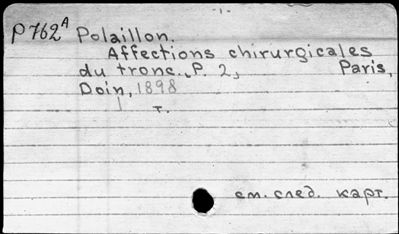 P762A Polaillon.
Affections chirurgicales
du tronc., P. 2, Paris,
Doin, 1898
т.
см. след. карт.